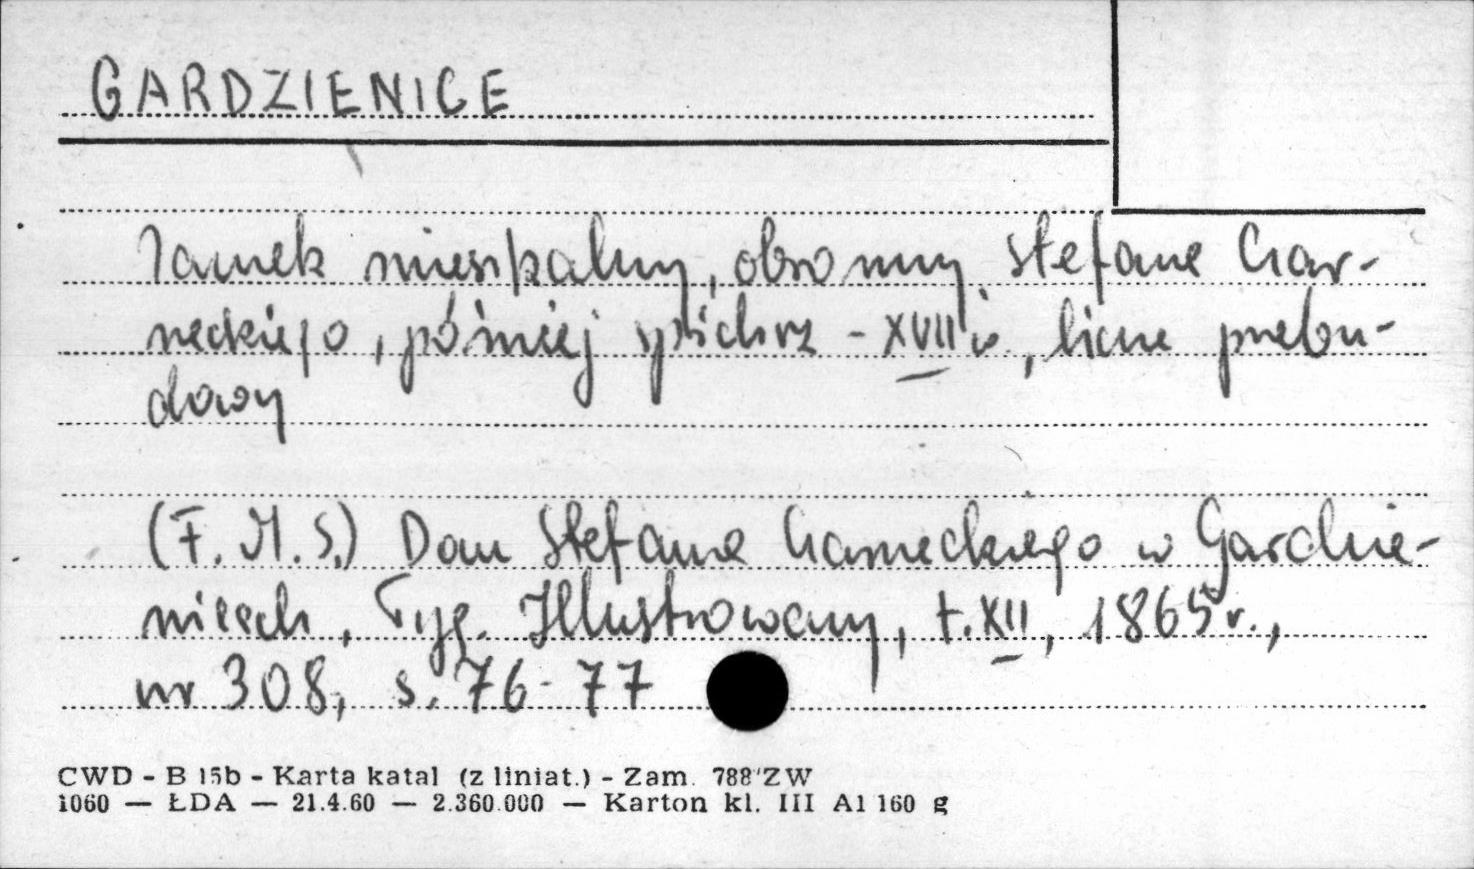 GARDZIENICE
Zamek mieszkalny, obronny Stefana Czar-
neckiego, później spichrz - XVII w., liczne przebu-
dowy
(F. M. S.) Dom Stefana Czarneckiego w Gardzie-
nicach, Tyg. Illustrowany, t. XII, 1865 r.,
nr 308, s. 76-77
CWD - B 15b - Karta katal (z liniat.) - Zam. 788 ZW
1060 — ŁDA — 21.4.60 — 2.360.000 — Karton kl. III A1 160 g